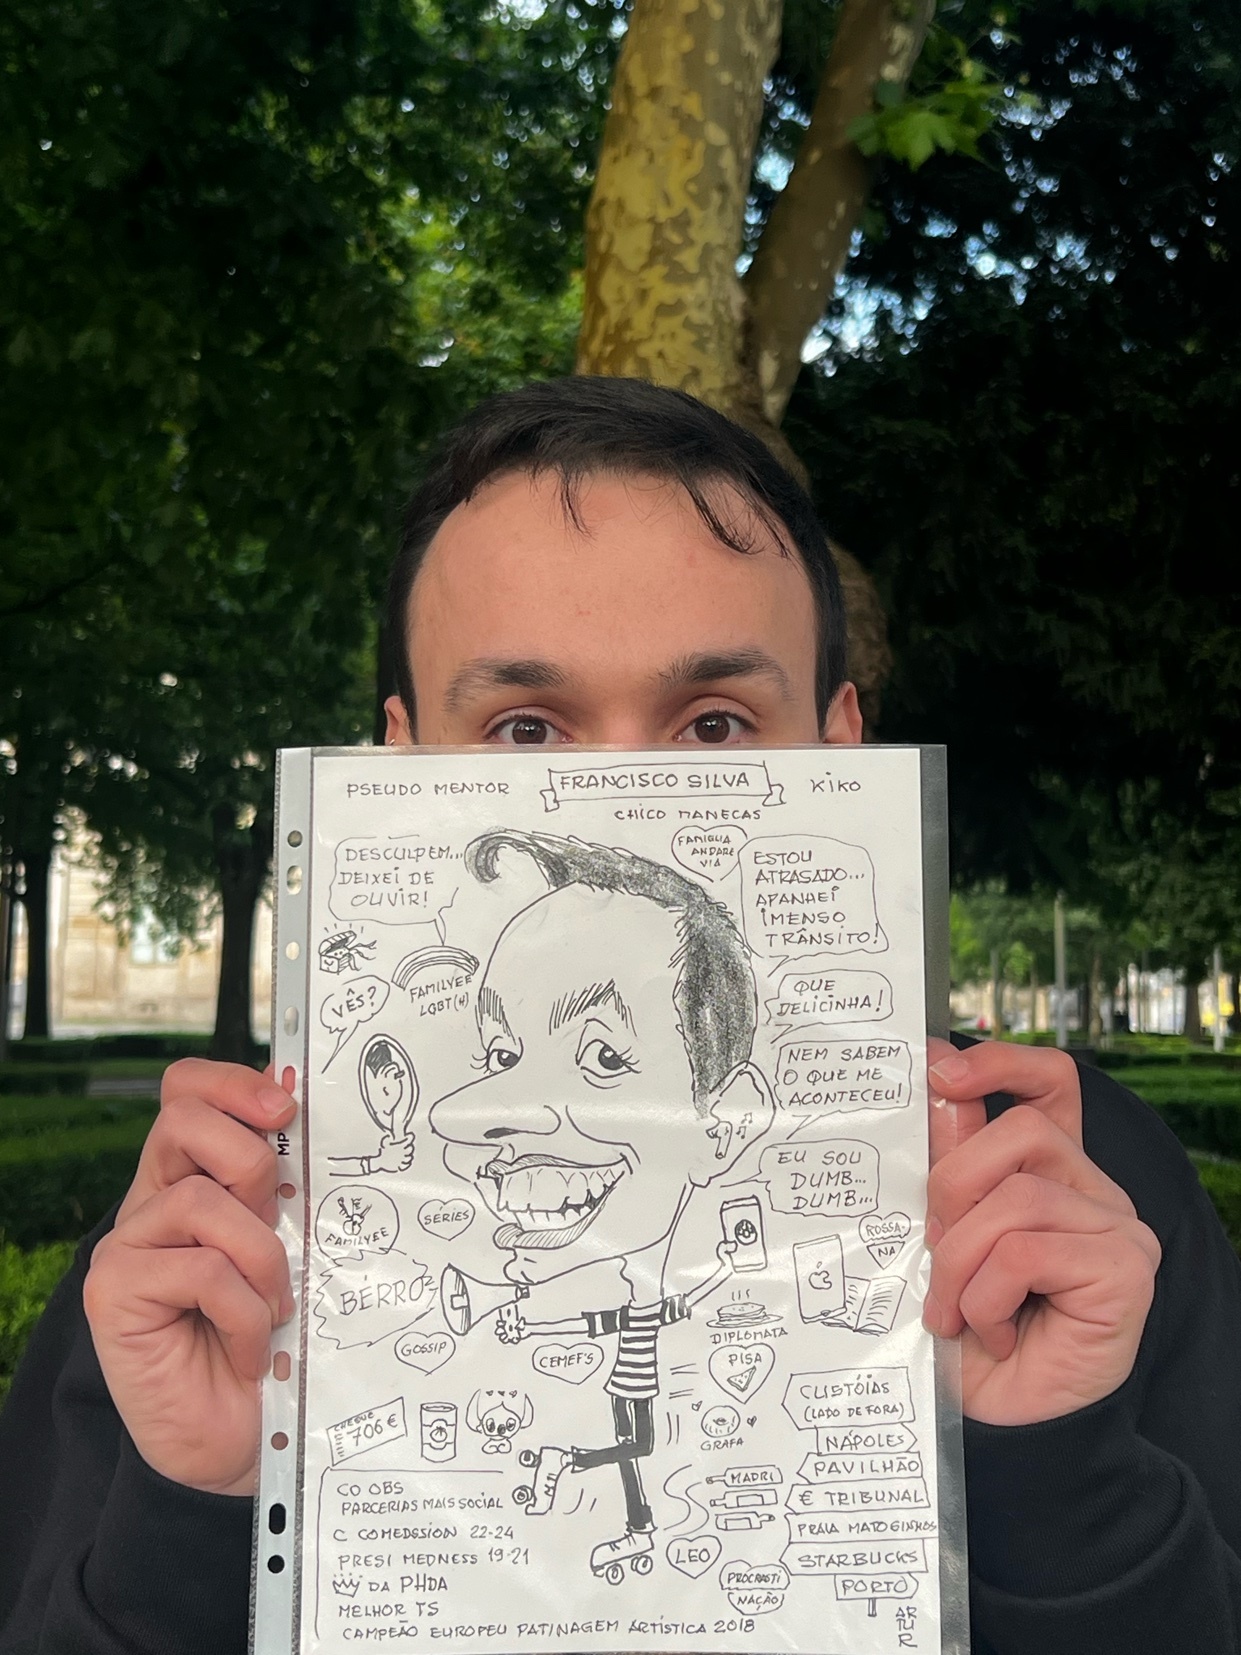 PSEUDO MENTOR
FRANCISCO SILVA
KIKO
CHICO MANECAS
DESCULPEM...
DEIXEI DE
OUVIR!
FAMIGLIA
ANDARE
VIA
ESTOU
ATRASADO...
APANHEI
IMENSO
TRÂNSITO!
VÊS?
FAMILYEE
LGBT(H)
QUE
DELICINHA!
NEM SABEM
O QUE ME
ACONTECEU!
EU SOU
DUMB...
DUMB...
MP
FAMILYEE
SÉRIES
ROSSA-
NA
BÉRRO
GOSSIP
CEMEF'S
DIPLOMATA
PISA
CUSTÓIAS
(LADO DE FORA)
CHEQUE
706 €
GRAFA
NÁPOLES
PAVILHÃO
MADRI
€ TRIBUNAL
PRAIA MATOSINHOS
STARBUCKS
PORTO
CO OBS
PARCERIAS MAIS SOCIAL
C COMEDSSION 22-24
PRESI MEDNESS 19-21
DA PHDA
MELHOR TS
CAMPEÃO EUROPEU PATINAGEM ARTÍSTICA 2018
LEO
PROCRASTI
NAÇÃO
AR
TU
R